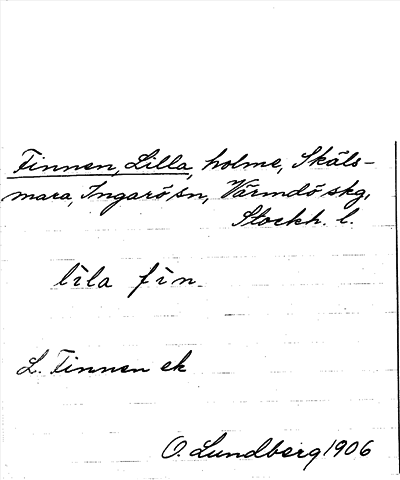 Finnen, Lilla, holme, Skäls-
mara, Ingarö sn, Värmdö skg,
Stockh. l.
lìla fìn.
L. Finnen ek
O. Lundberg 1906